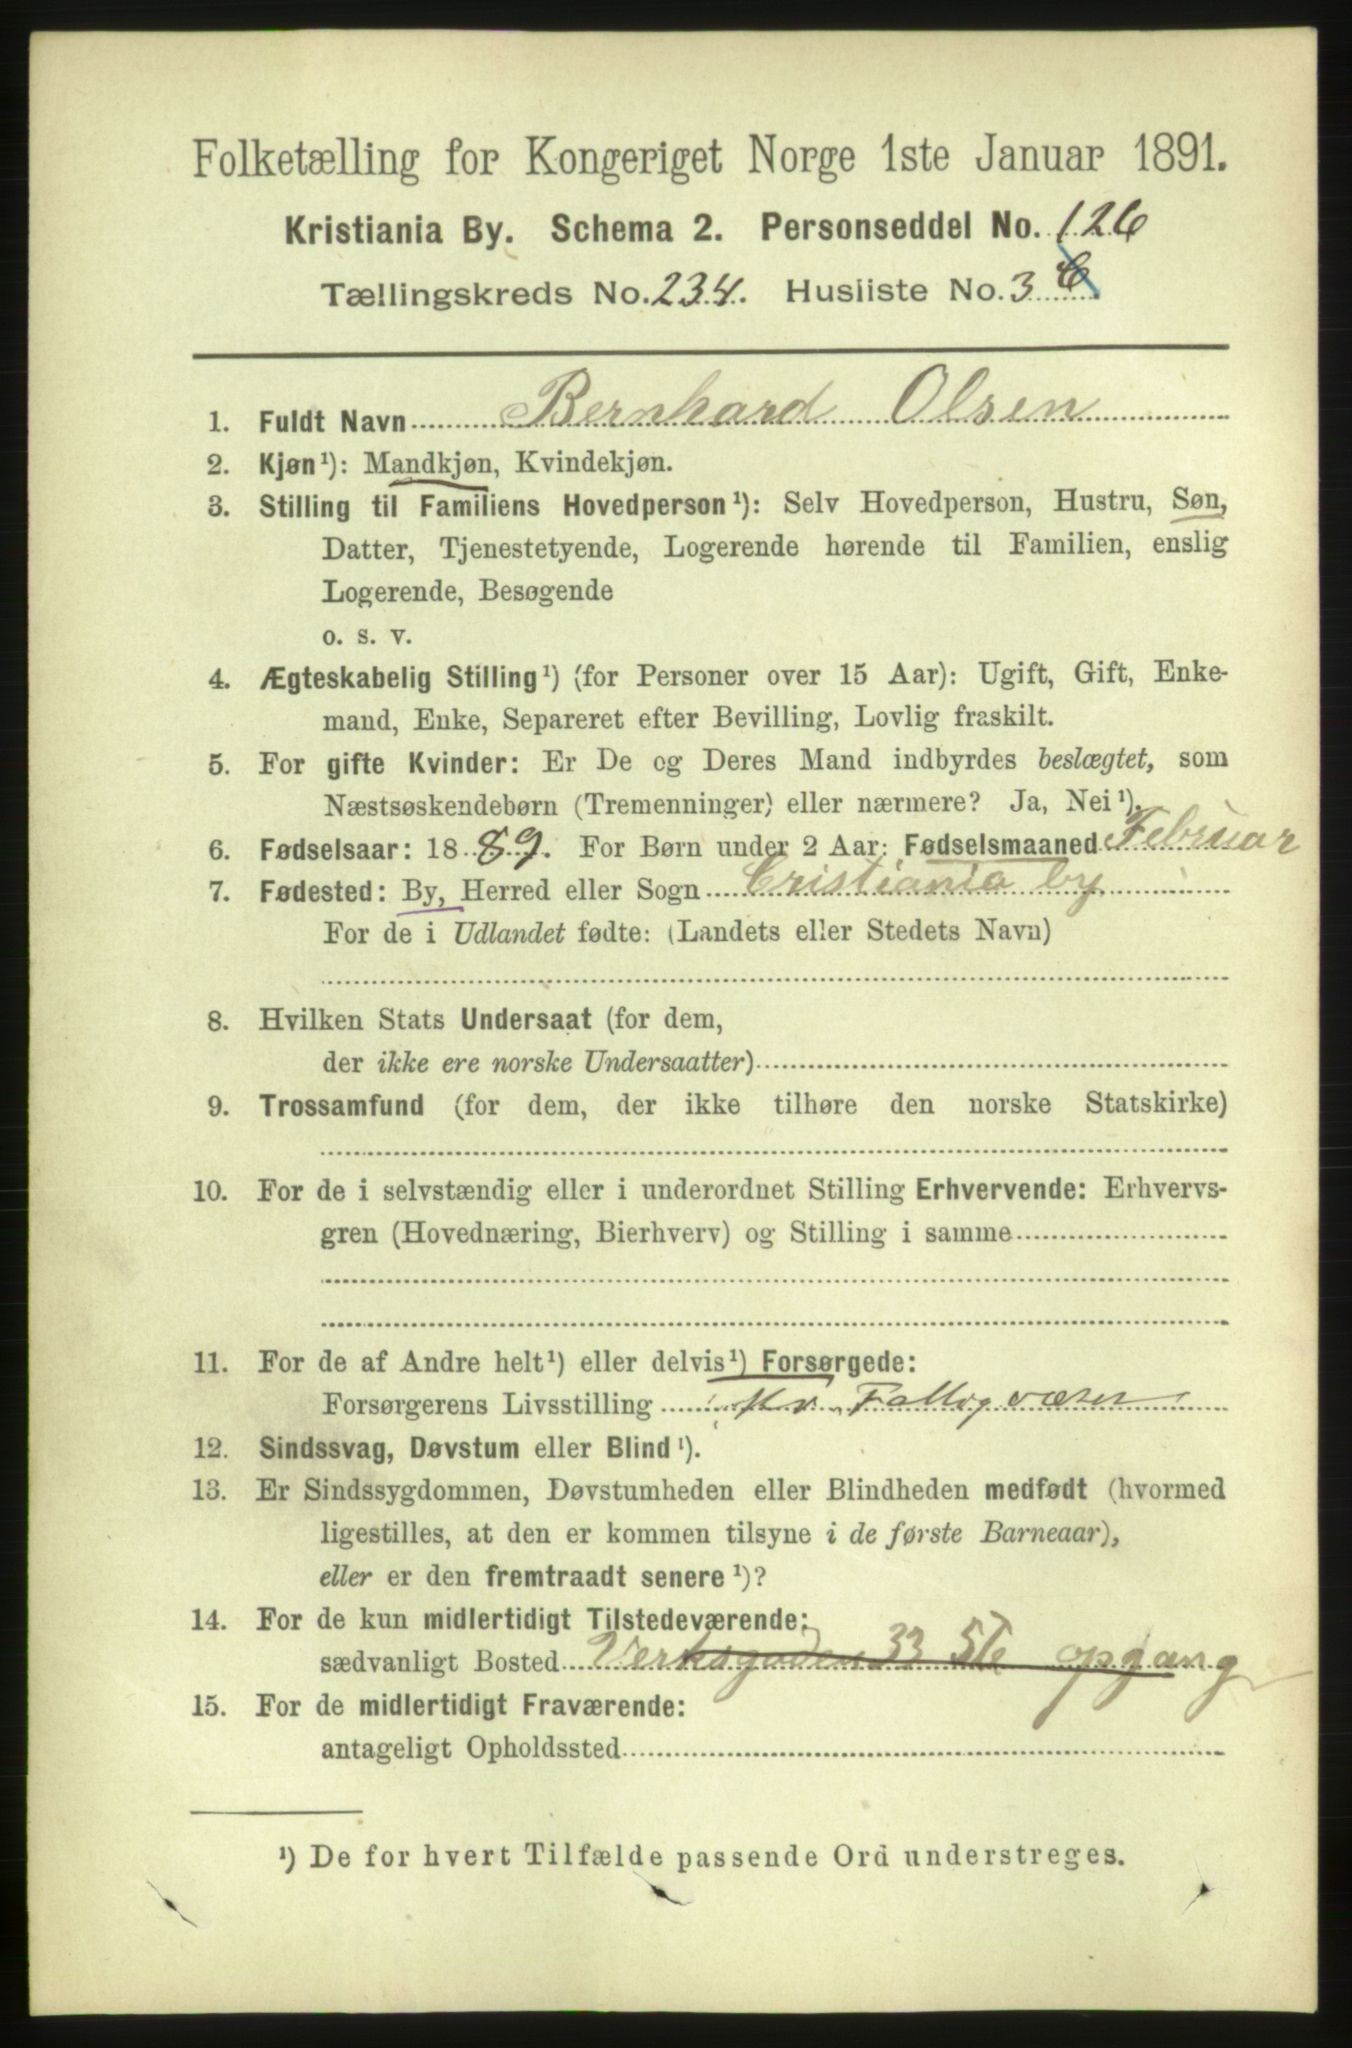 Folketælling for Kongeriget Norge 1ste Januar 1891.
Kristiania By. Schema 2. Personseddel No. 126
Tællingskreds No. 234. Husliste No. 3 C
1. Fuldt Navn Bernhard Olsen
2. Kjøn¹): Mandkjøn, Kvindekjøn.
3. Stilling til Familiens Hovedperson¹): Selv Hovedperson, Hustru, Søn,
Datter, Tjenestetyende, Logerende hørende til Familien, enslig
Logerende, Besøgende
o. s. v.
4. Ægteskabelig Stilling¹) (for Personer over 15 Aar): Ugift, Gift, Enke-
mand, Enke, Separeret efter Bevilling, Lovlig fraskilt.
5. For gifte Kvinder: Er De og Deres Mand indbyrdes beslægtet, som
Næstsøskendebørn (Tremenninger) eller nærmere? Ja, Nei¹).
6. Fødselsaar: 1889. For Børn under 2 Aar: Fødselsmaaned Februar
7. Fødested: By, Herred eller Sogn Cristiania by
For de i Udlandet fødte: (Landets eller Stedets Navn)
8. Hvilken Stats Undersaat (for dem,
der ikke ere norske Undersaatter)
9. Trossamfund (for dem, der ikke tilhøre den norske Statskirke)
10. For de i selvstændig eller i underordnet Stilling Erhvervende: Erhvervs-
gren (Hovednæring, Bierhverv) og Stilling i samme
11. For de af Andre helt¹) eller delvis¹) Forsørgede:
Forsørgerens Livsstilling
12. Sindssvag, Døvstum eller Blind¹).
13. Er Sindssygdommen, Døvstumheden eller Blindheden medfødt (hvormed
ligestilles, at den er kommen tilsyne i de første Barneaar),
eller er den fremtraadt senere¹)?
14. For de kun midlertidigt Tilstedeværende:
sædvanligt Bosted Verksgaden 33 5te opgang
15. For de midlertidigt Fraværende:
antageligt Opholdssted
¹) De for hvert Tilfælde passende Ord understreges.